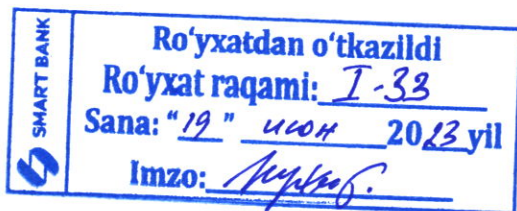 SMART BANK
Ro'yxatdan o'tkazildi
Ro'yxat raqami: I-33
Sana: "19" июн 2023 yil
Imzo: